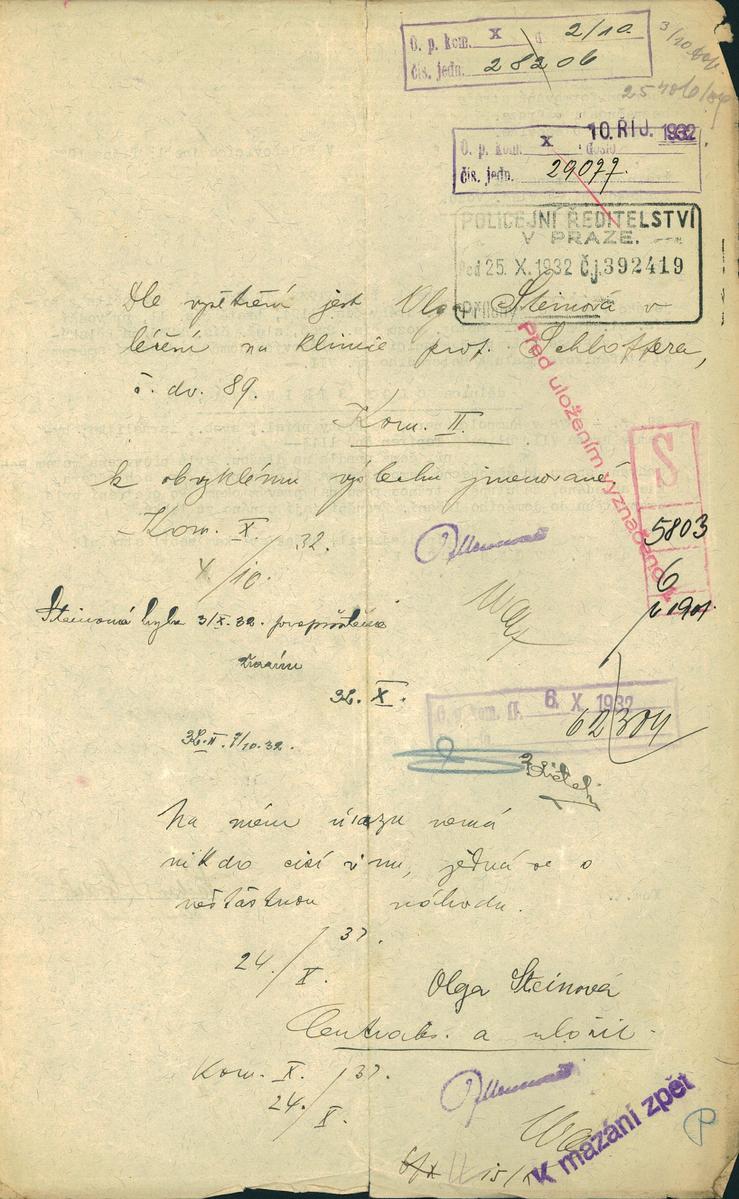 O. p. kom. X d. 2/10.
čís. jedn. 28206
3/10.
10. ŘÍJ. 1932
O. p. kom. X došlo
čís. jedn. 29077.
POLICEJNÍ ŘEDITELSTVÍ
V PRAZE.
25. X. 1932 Čj. 392419
Dle vyšetření jest Olga Steinová v
léčení na klinice prof. Schloffera,
č. dv. 89.
Kom. II.
k obvyklému výslechu jmenované.
Kom. X
X/10. 32.
Před uložením vyznačeno k
S
5803
6
1901
Steinová byla 3/X. 32. propuštěna
X.
O. p. kom. II. 6. X 1932
62304
II. 7/10. 32.
Na mém úrazu nemá
nikdo cizí vinu, jedná se o
nešťastnou náhodu.
24./X. 32.
Olga Steinová
Centrals. a uložit.
Kom. X. 24./X. 32.
K mazání zpět
P